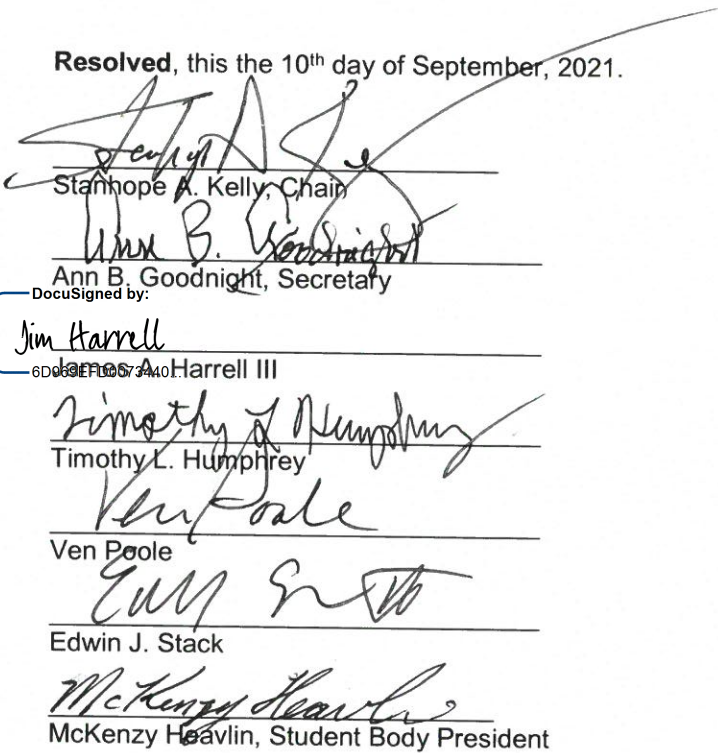 Resolved, this the 10th day of September, 2021.
Stanhope A. Kelly, Chair
Ann B. Goodnight
Ann B. Goodnight, Secretary
DocuSigned by:
Jim Harrell
James A. Harrell III
6D963EFD0073440...
Timothy L Humphrey
Timothy L. Humphrey
Ven Poole
Ven Poole
Edwin J. Stack
McKenzy Heavlin
McKenzy Heavlin, Student Body President